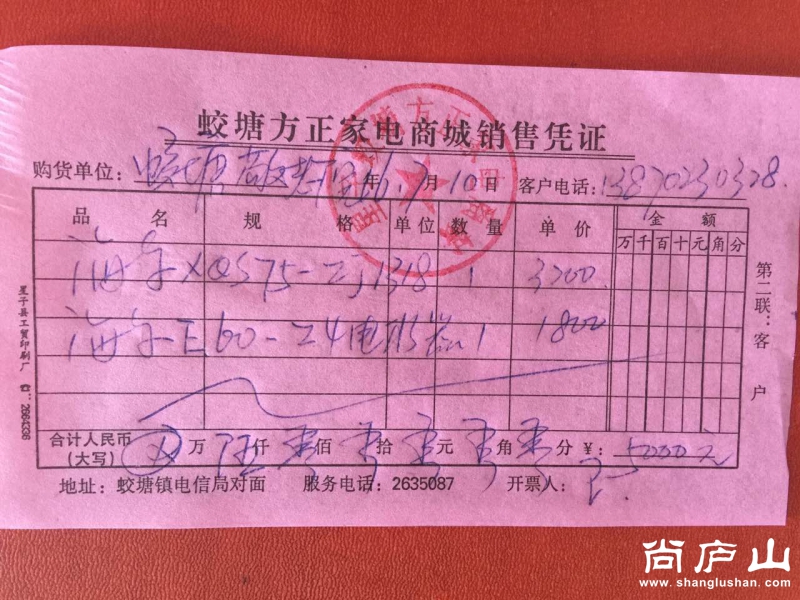 蛟塘方正家电商城销售凭证
购货单位：蛟塘敬老院 16年7月10日 客户电话：13870230328
品名 规格 单位 数量 单价 金额
万千百十元角分
海尔XQS75- 1318 1 3200
海尔E60-Z4电水器 1 1800
合计人民币（大写） 万伍仟零佰零拾零元零角零分 ¥：5000元
地址：蛟塘镇电信局对面 服务电话：2635087 开票人：
第二联：客户
星子县工贸印刷厂
尚庐山
www.shanglushan.com